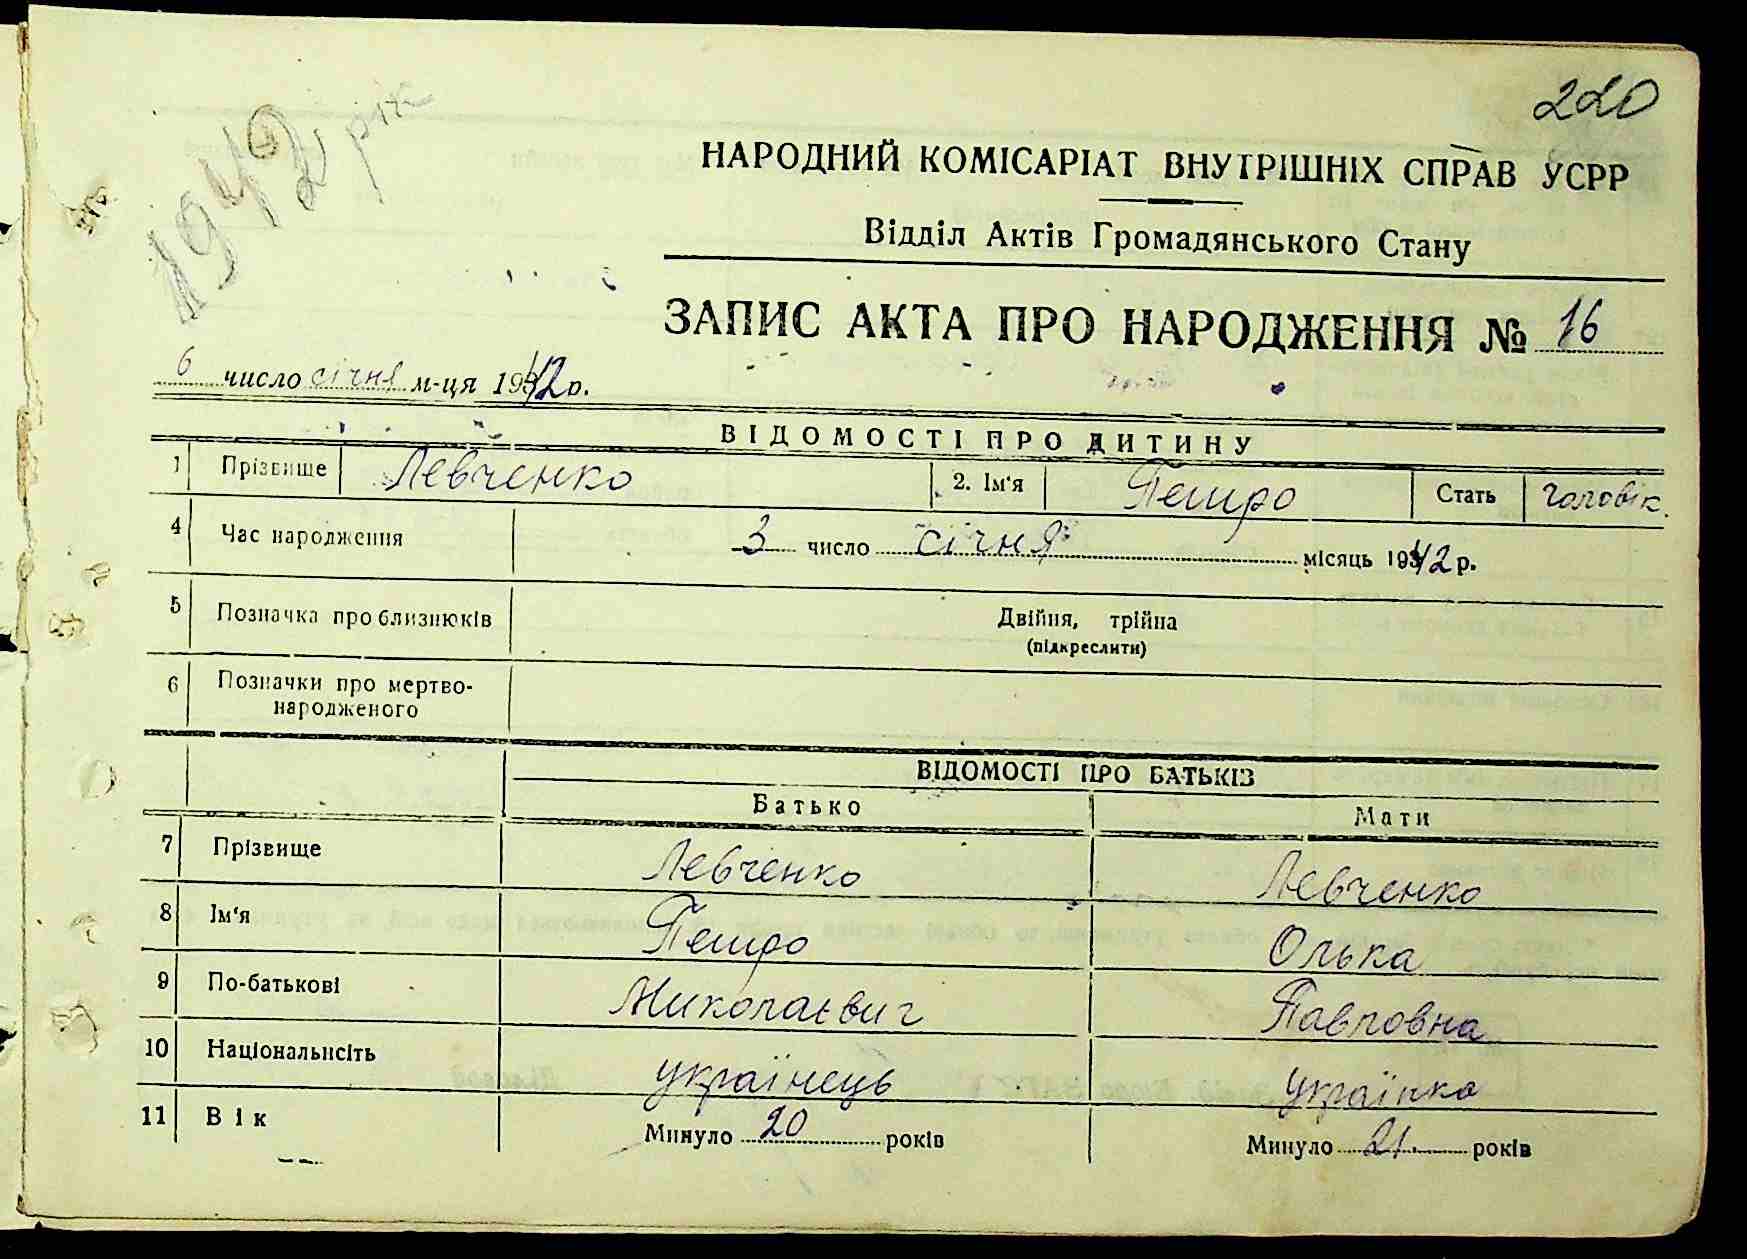 1942 рік
220
НАРОДНИЙ КОМІСАРІАТ ВНУТРІШНІХ СПРАВ УСРР
Відділ Актів Громадянського Стану
ЗАПИС АКТА ПРО НАРОДЖЕННЯ № 16
6 число січня м-ця 1942 р.
ВІДОМОСТІ ПРО ДИТИНУ
1 Прізвище Левченко 2. Ім'я Петро Стать чоловік.
4 Час народження 3 число січня місяць 1942 р.
5 Позначка про близнюків Двійня, трійна
(підкреслити)
6 Позначки про мертво-
народженого
ВІДОМОСТІ ПРО БАТЬКІВ
Батько Мати
7 Прізвище Левченко Левченко
8 Ім'я Петро Олька
9 По-батькові Миколаєвич Павловна
10 Національнсіть українець українка
11 Вік Минуло 20 років Минуло 21 років